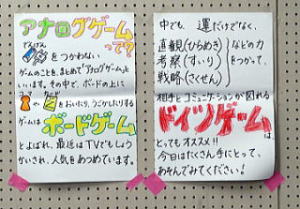 アナログゲーム
って？
でんげん
をつかわない
ゲームのことを、まとめて「アナログゲーム」と
いいます。その中で、ボードの上に
や カード をおいたり、うごかしたりする
ゲームは ボードゲーム
とよばれ、最近はTVでもしょう
かいされ、人気をあつめています。
中でも、運だけでなく、
直観(ひらめき)
考察(すいり)
戦略(さくせん)
などの力
をつかって、
相手とコミュニケーションが図れる
ドイツゲーム は
とってもオススメ!!
今日はたくさん手にとって、
あそんでみてください!